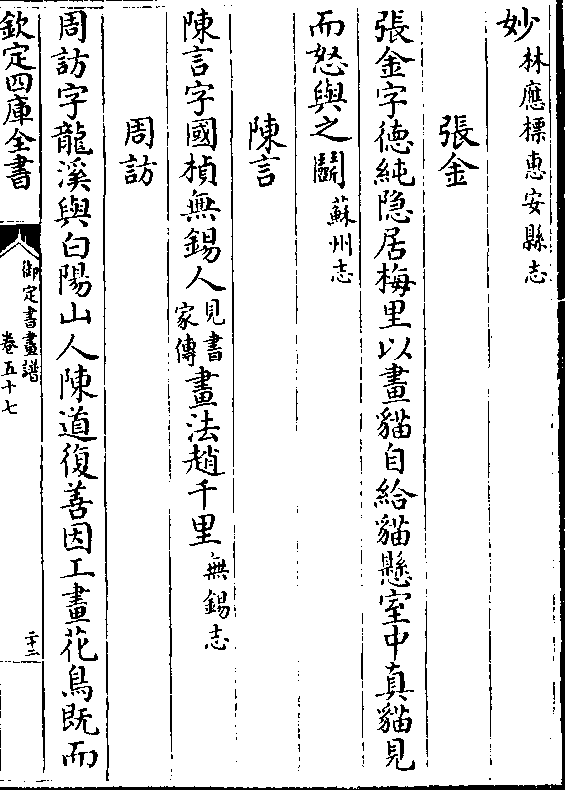 妙林應標惠安縣志
張金
張金字德純隐居梅里以畫貓自給貓懸室中真貓見
而怒與之鬭蘇州志
陳言
陳言字國楨無錫人見書家傳畫法趙千里無錫志
周訪
周訪字龍溪與白陽山人陳道復善因工畫花鳥既而
欽定四庫全書
御定書畫譜
卷五十七
二十二